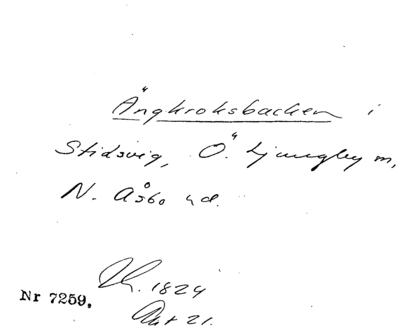 Ängkroksbacken i
Stidsvig, Ö. Ljungby m,
N. Åsbo hd.
1824
Nr 7259.
Akt 21.